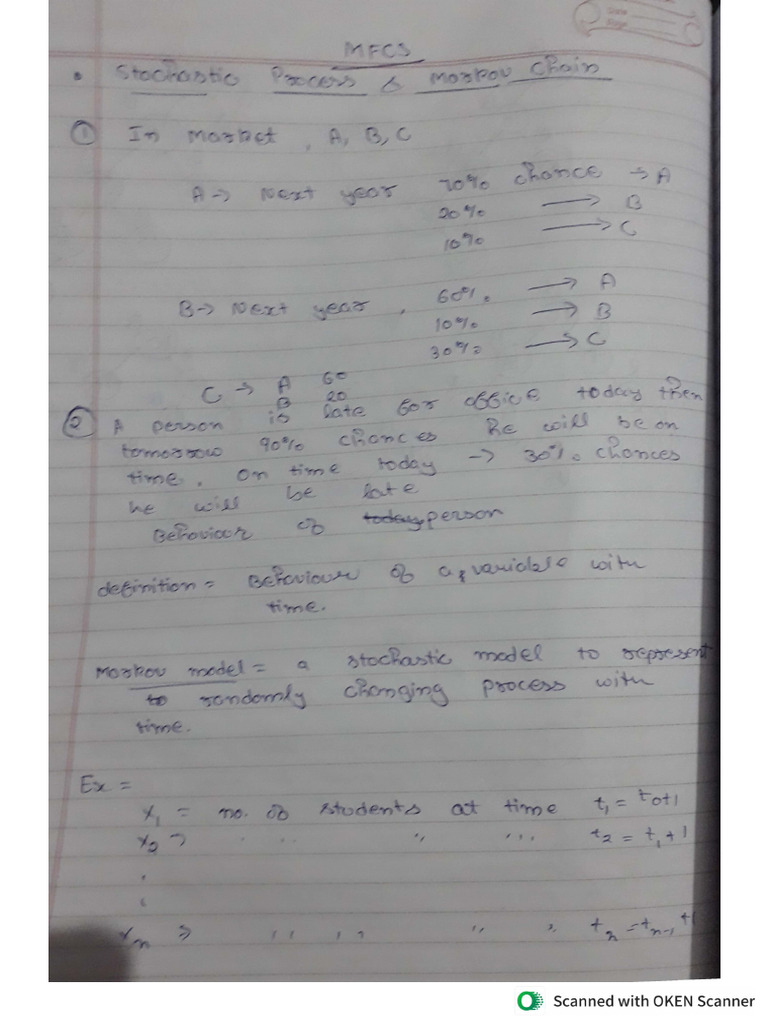 Date
Page
MFCS
• Stochastic Process & Markov Chain
① In Market, A, B, C
A → Next year 70% chance → A
20% → B
10% → C
B → Next year, 60% → A
10% → B
30% → C
C → A 60
B 20
② A person is late for office today then
tomorrow 90% chances he will be on
time. On time today → 30% chances
he will be late
Behaviour of today person
definition = Behaviour of a variable with
time.
Markov model = a stochastic model to represent
to randomly changing process with
time.
Ex =
x₁ = no. of students at time t₁ = t₀+1
x₂ = " " " " t₂ = t₁+1
xₙ = " " " " tₙ = tₙ₋₁+1
Scanned with OKEN Scanner